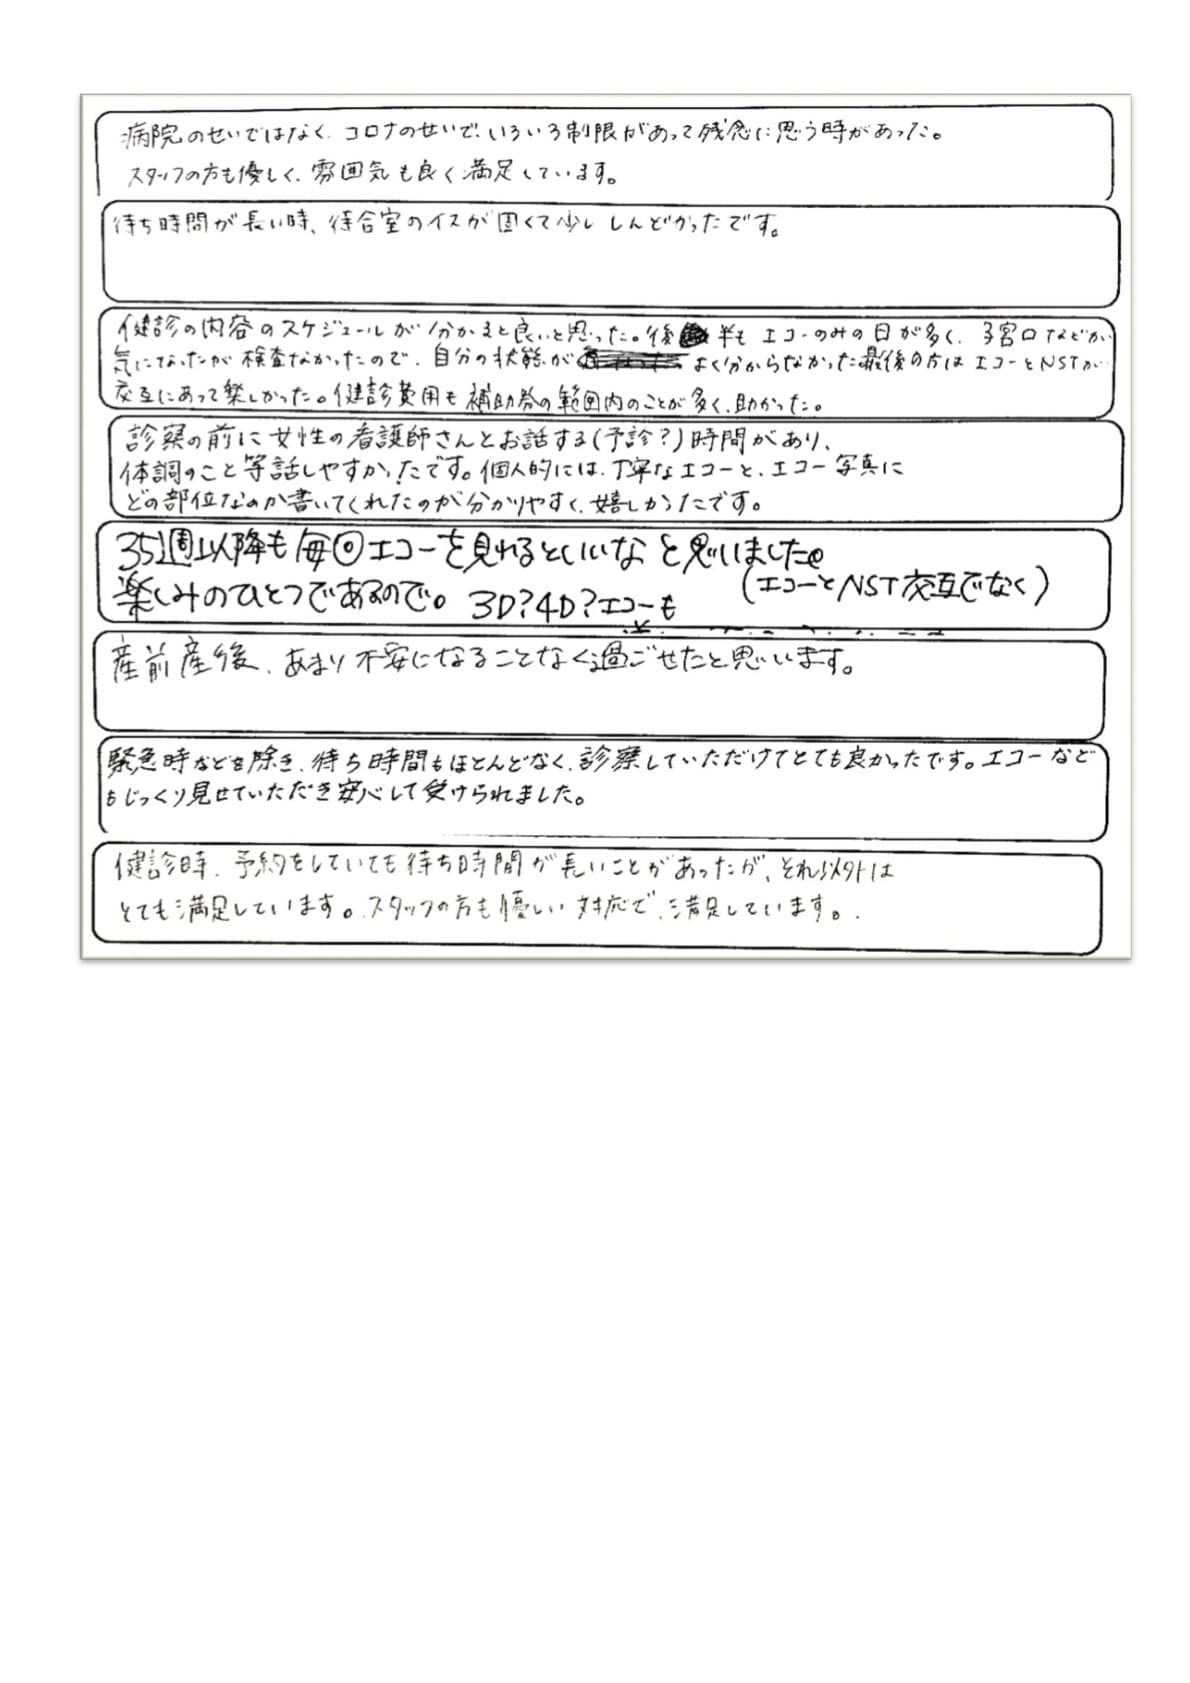 病院のせいではなく、コロナのせいで、いろいろ制限があって残念に思う時があった。
スタッフの方も優しく、雰囲気も良く満足しています。
待ち時間が長い時、待合室のイスが固くて少ししんどかったです。
健診の内容のスケジュールが分かると良いと思った。後半も エコーのみの日が多く、子宮口などが
気になったが検査なかったので、自分の状態が よく分からなかった最後の方はエコーとNSTが
交互にあって楽しかった。健診費用も補助券の範囲内のことが多く、助かった。
診察の前に女性の看護師さんとお話する(予診?)時間があり、
体調のこと等話しやすかったです。個人的には、丁寧なエコーと、エコー写真に
どの部位なのか書いてくれたのが分かりやすく、嬉しかったです。
35週以降も毎回エコーを見れるといいなと思いました。
(エコーとNST交互でなく)
楽しみのひとつであるので。3D?4D?エコーも
産前産後、あまり不安になることなく過ごせたと思います。
緊急時などを除き、待ち時間もほとんどなく、診察していただけてとても良かったです。エコーなど
もじっくり見せていただき安心して受けられました。
健診時、予約をしていても待ち時間が長いことがあったが、それ以外は
とても満足しています。スタッフの方も優しい対応で、満足しています。